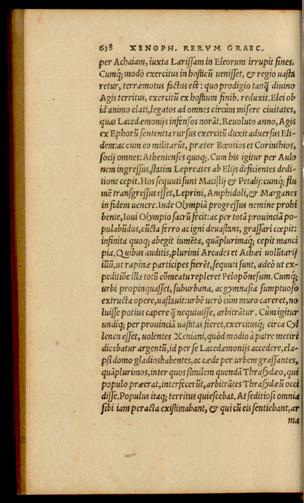 638 XENOPH. RERVM GRAEC.
per Achaiam, iuxta Larissam in Eleorum irrupit fines.
Cumq́; modò exercitus in hosticũ uenisset, & regio uasta
retur, terræmotus factus est: quo prodigio tanq̃ diuino
Agis territus, exercitũ ex hostium finib. reduxit. Elei ob
id animo elati, legatos ad omnes circùm misere ciuitates,
quas Lacedæmonijs infensos norãt. Reuoluto anno, Agis
ex Ephorũ sententia rursus exercitũ duxit aduersus Eli-
dem: ac cum eo militarũt, præter Bœotios et Corinthios,
socij omnes: Athenienses quoq́;. Cum bis igitur per Aulo
nem ingressus, statim Lepreates ab Elijs deficientes dedi-
tione cepit. Hos sequuti sunt Macistij & Petalij: cumq́; flu
mẽ transgressus esset, Leprini, Amphidoli, & Marganes
in fidem uenere. Inde Olympiã progressus nemine prohi
bente, Ioui Olympio sacrũ fecit: ac per totã prouinciã po-
pulabũdus, cũcta ferro ac igni deuastans, grassari cœpit:
infinita quoq; abegit iumẽta, quàmplurimaq́; cepit manci
pia. Quibus auditis, plurimi Arcades et Achæi uolũtarij
illũ, ut rapinæ participes fierẽt, sequuti sunt, adeò ut ex-
peditiõe illa totũ cõmeatu repleret Peloponesum. Cumq́;
urbi propinquasset, suburbana, ac gymnasia sumptuoso
extructa opere, uastauit: urbẽ uerò cùm muro careret, no
luisse potius capere q̃ nequiuisse, arbitrãtur. Cùm igitur
undiq; per prouinciã uastitas fieret, exercitusq́; circa Cyl
lenen esset, uolentes Xeniani, quòd modio à patre metiri
dicebatur argentũ, id per se Lacedæmonijs accedere, ela-
psi domo gladios habentes, ac cæde per urbem grassantes,
quàmplurimos, inter quos similem quendã Thrasydæo, qui
populo præerat, interfecerũt, arbitrãtes Thrasydæũ occi
disse. Populus itaq; territus quiescebat. At seditiosi omnia
sibi iam peracta existimabant, & qui cũ eis sentiebant, ar
ma